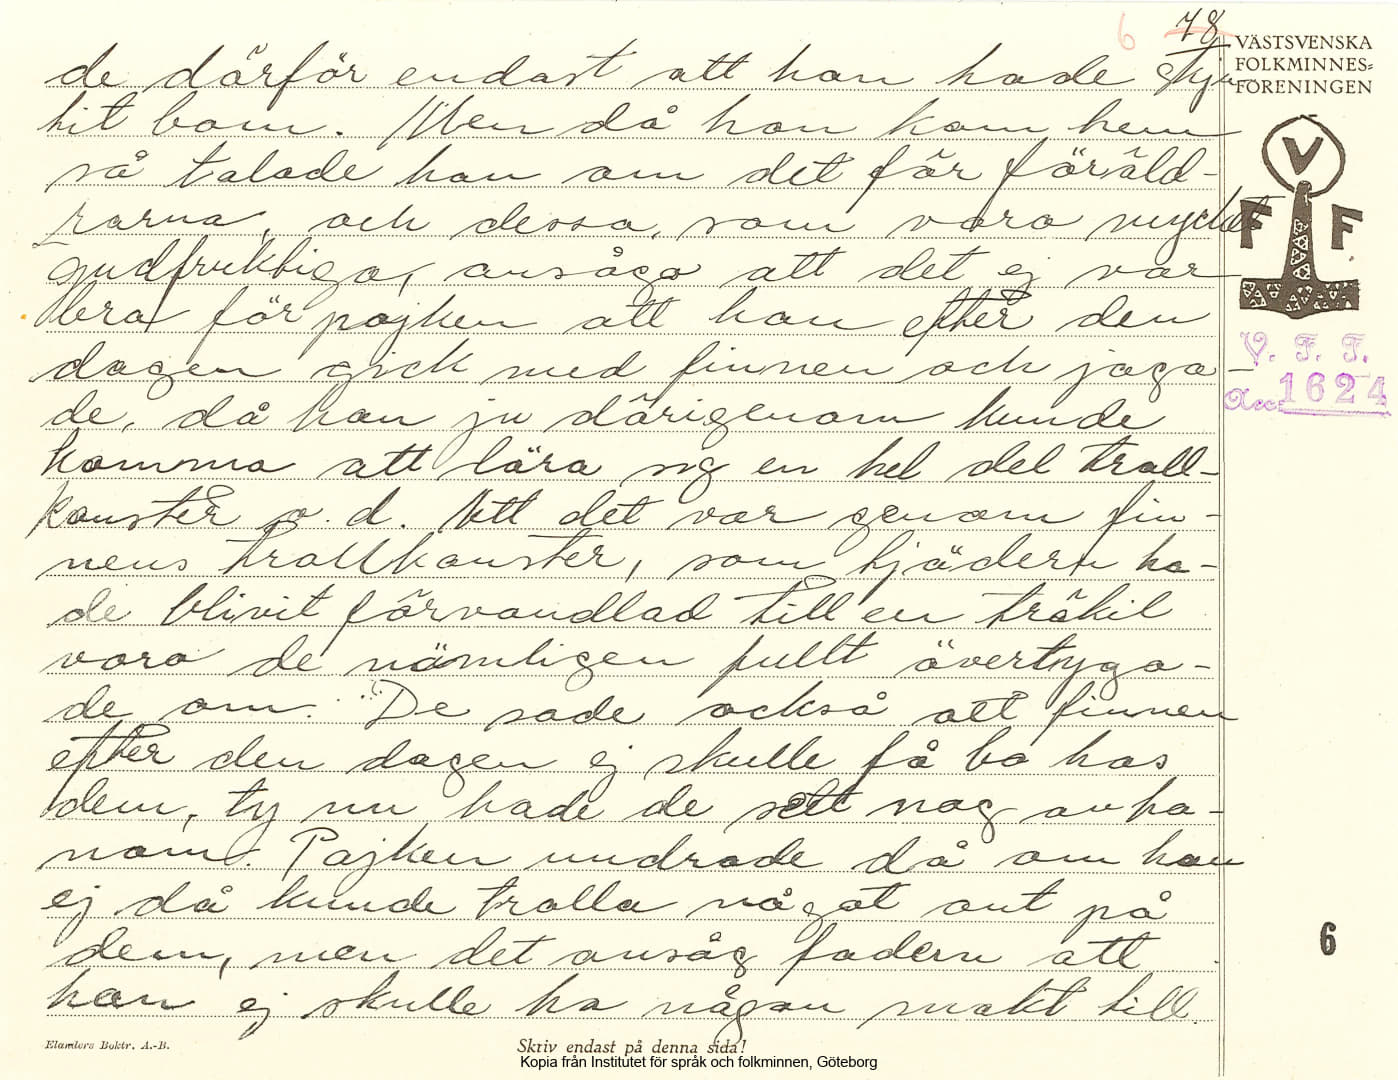 6 78
VÄSTSVENSKA
FOLKMINNES-
FÖRENINGEN
de därför endast att han hade skju-
tit bom. Men då han kom hem
så talade han om det för föräld-
rarna, och dessa, som voro mycket
gudfruktiga, ansågo att det ej var
bra för pojken att han efter den
dagen gick med finnen och jaga-
de, då han ju därigenom kunde
komma att lära sig en hel del troll-
konster o. d. Att det var genom fin-
nens trollkonster, som tjädern ha-
de blivit förvandlad till en träkil
voro de nämligen fullt övertyga-
de om. De sade också att finnen
efter den dagen ej skulle få bo hos
dem, ty nu hade de sett nog av ho-
nom. Pojken undrade då om han
ej då kunde trolla något ont på
dem, men det ansåg fadern att
han ej skulle ha någon makt till.
V
F F
V. F. F.
Acc. 1624
6
Elanders Boktr. A.-B.
Skriv endast på denna sida!
Kopia från Institutet för språk och folkminnen, Göteborg